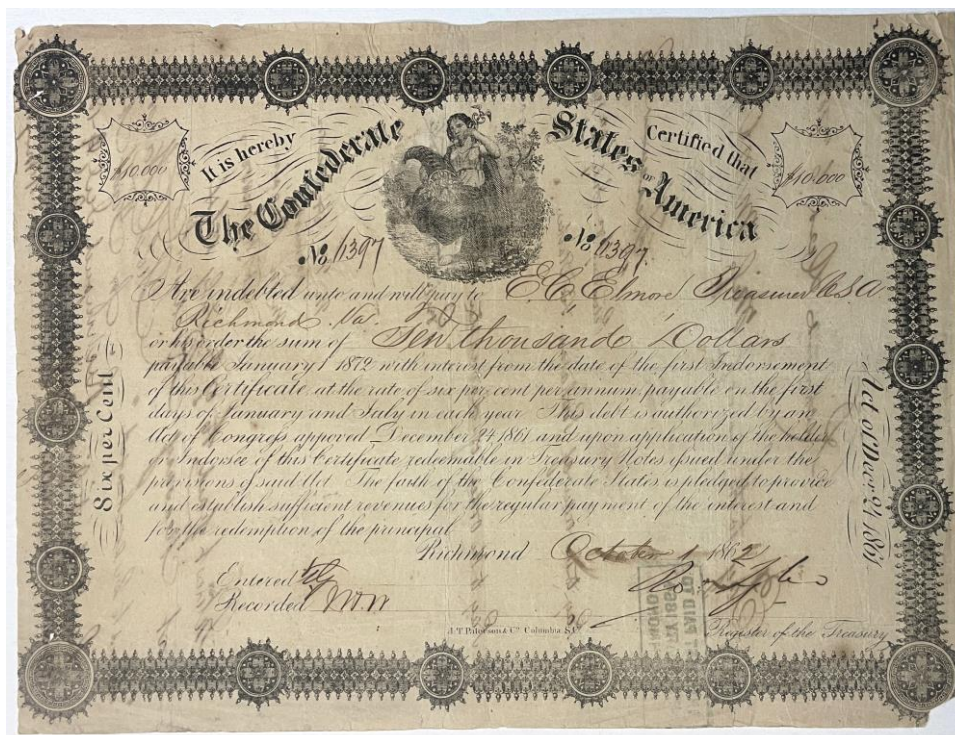 $10.000
It is hereby
Certified that
$10.000
The Confederate States of America
No 11397
No 11397.
Are indebted unto and will pay to E. C. Elmore Treasurer C.S.A
Richmond. Va.
or his order the sum of Ten thousand Dollars
payable January 1 1872 with interest from the date of the first Indorsement
of this Certificate, at the rate of six per cent per annum, payable on the first
days of January and July in each year This debt is authorized by an
Act of Congress approved December 24 1861 and upon application of the holder
or Indorsee of this Certificate redeemable in Treasury Notes issued under the
provisions of said Act. The faith of the Confederate States is pledged to provide
and establish sufficient revenues for the regular payment of the interest and
for the redemption of the principal
Richmond October 1 1862
Entered
Recorded
Register of the Treasury
J. T. Paterson & Co Columbia S.C.
Six per Cent
Act of Decr 24 1861